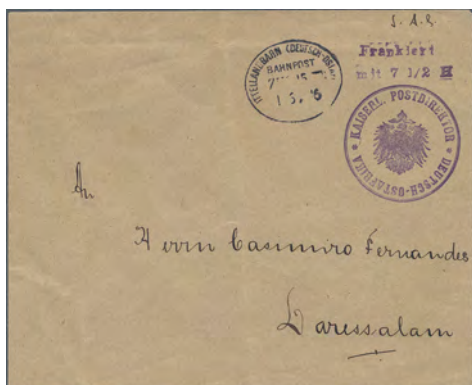 Frankiert
mit 7 1/2 H
MITTELLANDBAHN (DEUTSCH-OSTAFR.
BAHNPOST
KAISERL. POSTDIREKTOR * DEUTSCH-OSTAFRIKA *
An
Herrn Casimiro Fernandes
Daressalam